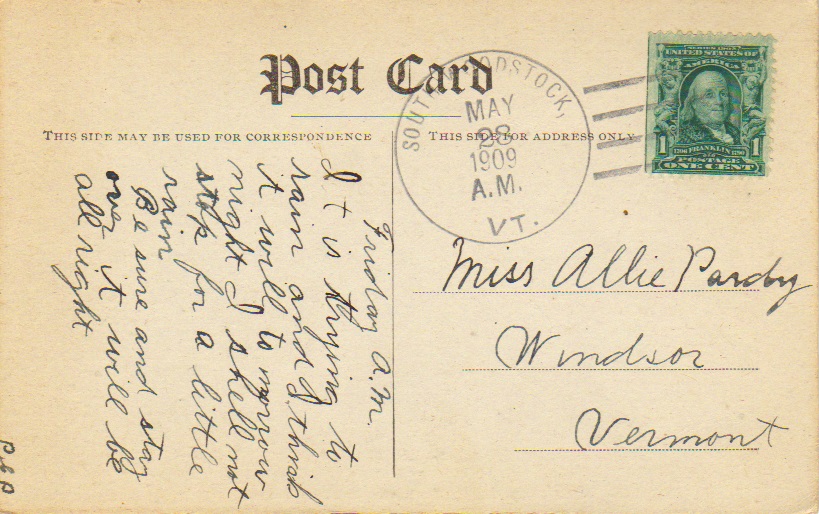 Post Card
THIS SIDE MAY BE USED FOR CORRESPONDENCE
THIS SIDE FOR ADDRESS ONLY
SOUTH WOODSTOCK,
MAY
28
1909
A.M.
VT.
SERIES 1902
UNITED STATES OF
AMERICA
1706 FRANKLIN 1790
1 1
POSTAGE
ONE CENT
Friday A.M.
It is thrying to
rain and I think
it will to morrow
night I shell not
stop for a little
rain
Be sure and stay
over it will be
all right
Miss Allie Pardy
Windsor
Vermont